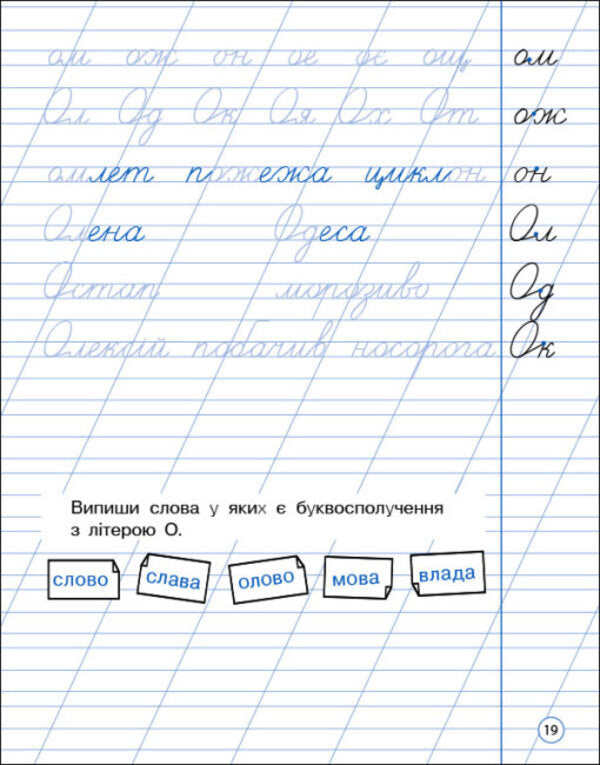 ом ож он ое оє ощ ом
Ол Од Ок Оя Ох От ож
омлет пожежа циклон он
Олена Одеса Ол
Остап морозиво Од
Олексій побачив носорога Ок
Випиши слова у яких є буквосполучення
з літерою О.
слово слава олово мова влада
19